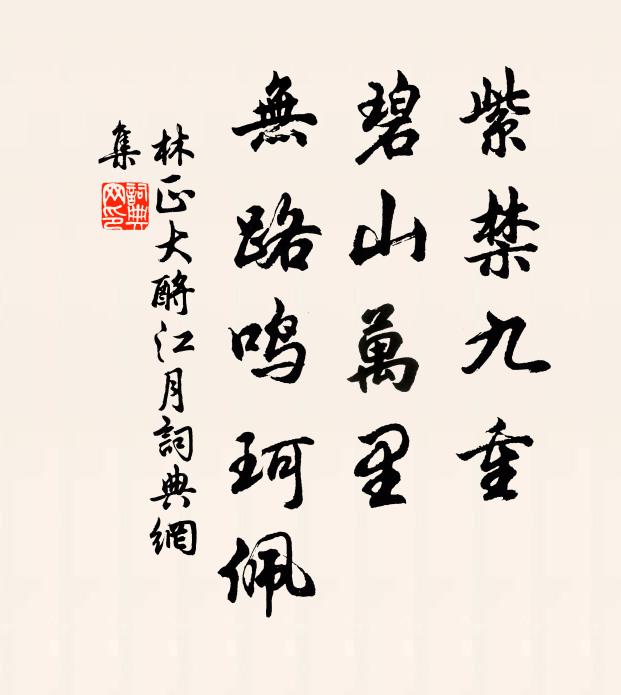 紫禁九重
碧山萬里
無路鸣珂佩
林正大酹江月詞典網
集
詞典
网印